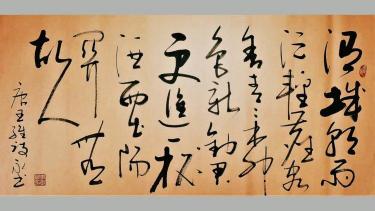 渭城朝雨
浥轻尘客
舍青青柳
色新劝君
更进一杯
酒西出阳
关无
故人
唐王维诗